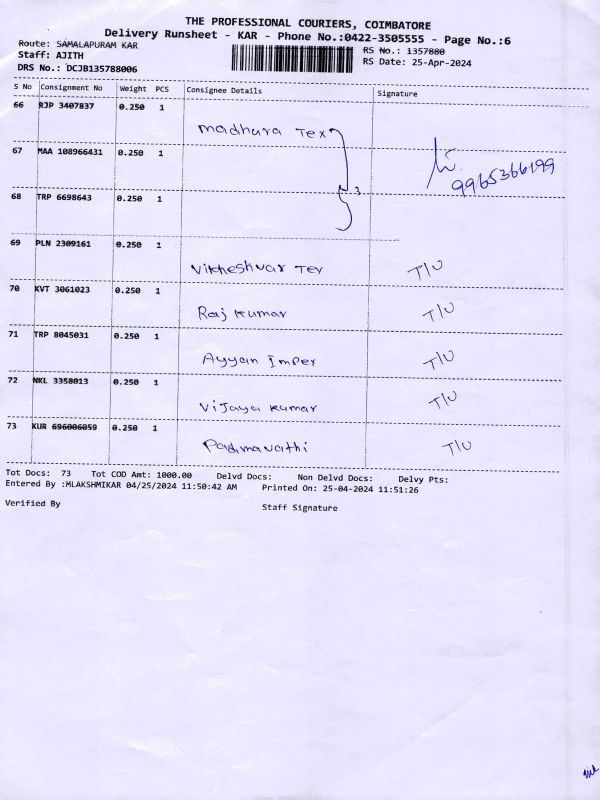 THE PROFESSIONAL COURIERS, COIMBATORE
Delivery Runsheet - KAR - Phone No.:0422-3505555 - Page No.:6
Route: SAMALAPURAM KAR
RS No.: 1357880
Staff: AJITH
RS Date: 25-Apr-2024
DRS No.: DCJB135788006
S No Consignment No Weight PCS Consignee Details Signature
66 RJP 3407837 0.250 1
madhura Tex
67 MAA 108966431 0.250 1
9965366199
3
68 TRP 6698643 0.250 1
69 PLN 2309161 0.250 1
Vikheshvar Tex T/U
70 KVT 3061023 0.250 1
Raj Kumar T/U
71 TRP 8045031 0.250 1
Ayyan Impex T/U
72 NKL 3358013 0.250 1
Vijaya Kumar T/U
73 KUR 696006059 0.250 1
Padmavathi T/U
Tot Docs: 73 Tot COD Amt: 1000.00 Delvd Docs: Non Delvd Docs: Delvy Pts:
Entered By :MLAKSHMIKAR 04/25/2024 11:50:42 AM Printed On: 25-04-2024 11:51:26
Verified By Staff Signature